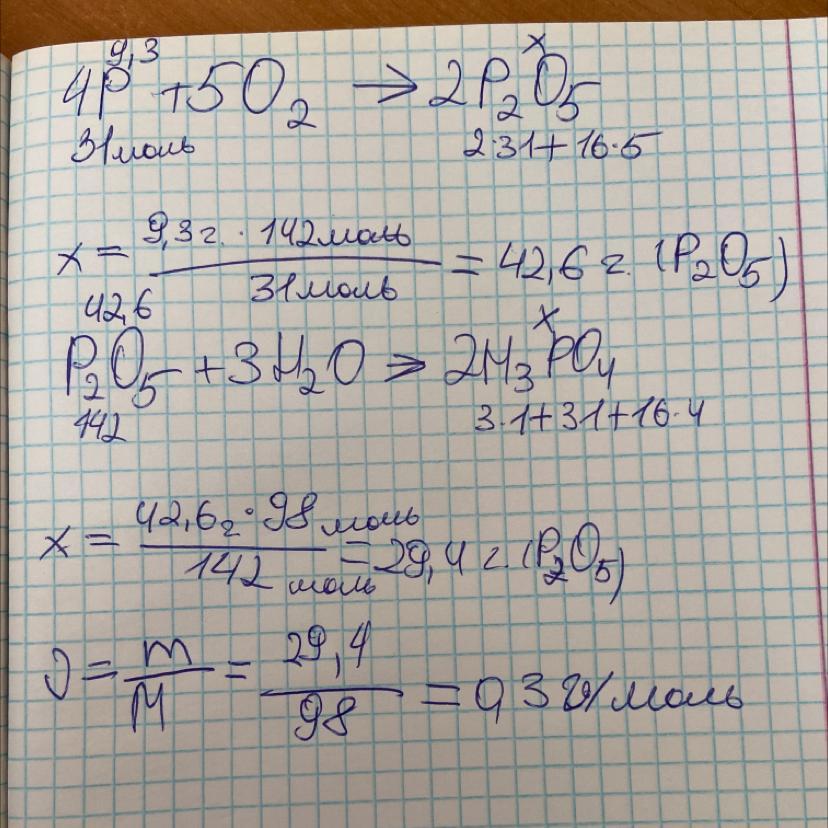 9,3 x
4P + 5O₂ → 2P₂O₅
31моль 2·31+16·5
x = 9,3г. · 142моль / 31моль = 42,6 г. (P₂O₅)
42,6 x
P₂O₅ + 3H₂O → 2H₃PO₄
142 3·1+31+16·4
x = 42,6г · 98 моль / 142 моль = 29,4 г. (P₂O₅)
ν = m / M = 29,4 / 98 = 0,3 г/моль